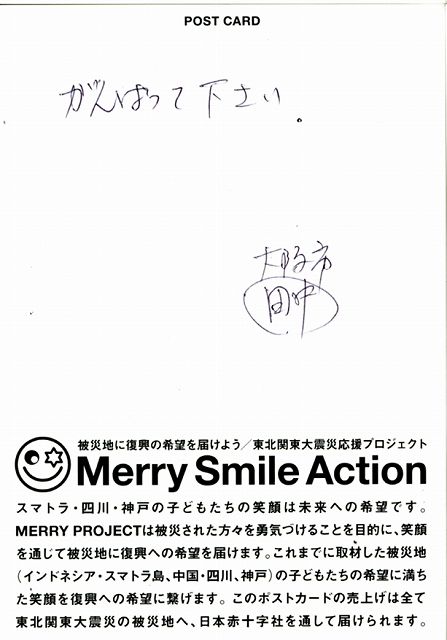 POST CARD
がんばって下さい。
大阪市
田中
被災地に復興の希望を届けよう／東北関東大震災応援プロジェクト
Merry Smile Action
スマトラ・四川・神戸の子どもたちの笑顔は未来への希望です。
MERRY PROJECTは被災された方々を勇気づけることを目的に、笑顔
を通じて被災地に復興への希望を届けます。これまでに取材した被災地
（インドネシア・スマトラ島、中国・四川、神戸）の子どもたちの希望に満ち
た笑顔を復興への希望に繋げます。このポストカードの売上げは全て
東北関東大震災の被災地へ、日本赤十字社を通して届けられます。